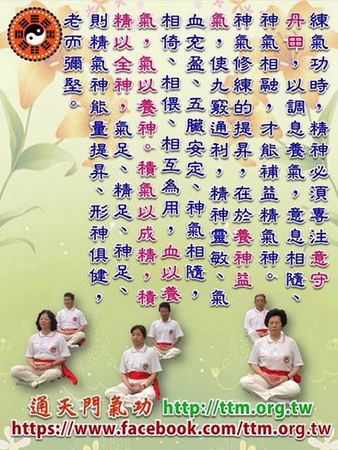 練氣功時，精神必須專注意守
丹田，以調息養氣，意息相隨、
神氣相融，才能補益精氣神。
神氣修練的提昇，在於養神益
氣，使九竅通利，精神靈敏、氣
血充盈、五臟安定、神氣相隨，
相倚、相偎、相互為用，血以養
氣，氣以養神。積氣以成精，積
精以全神，氣足、精足、神足、
則精氣神能量提昇、形神俱健，
老而彌堅。
通天門氣功 http://ttm.org.tw
https://www.facebook.com/ttm.org.tw